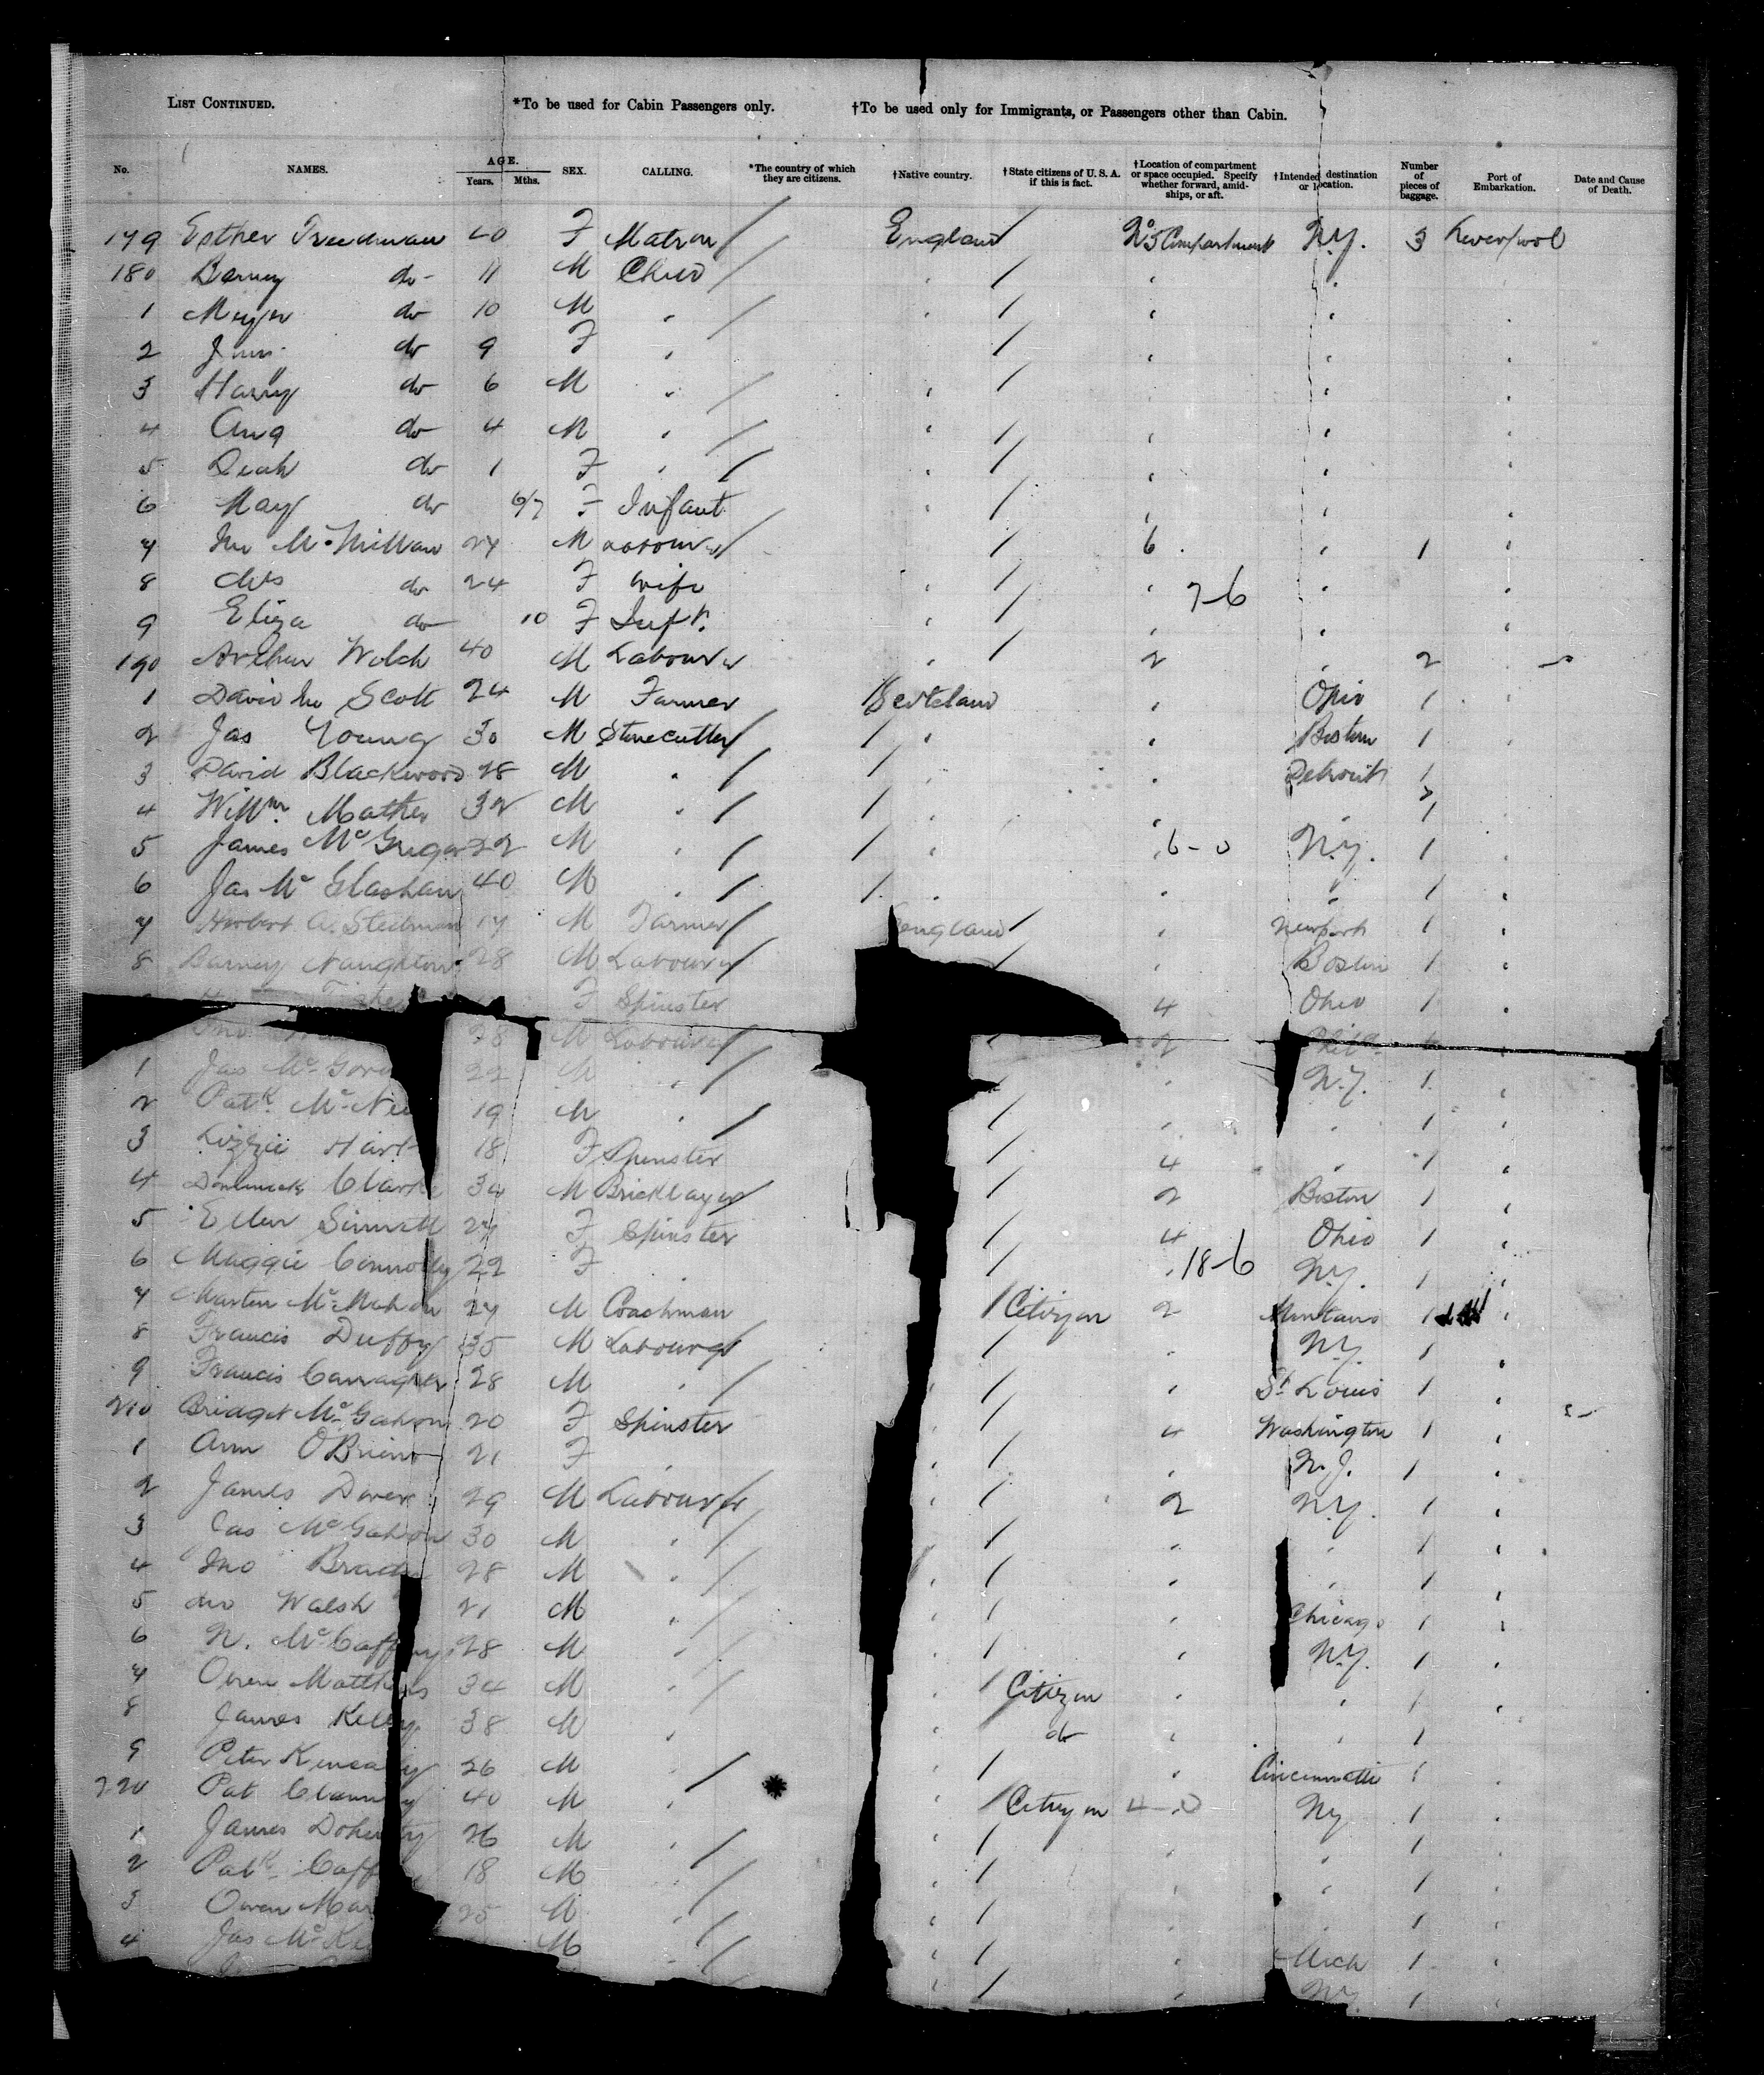 LIST CONTINUED. *To be used for Cabin Passengers only. †To be used only for Immigrants, or Passengers other than Cabin.
No. NAMES. AGE. Years. Mths. SEX. CALLING. *The country of which they are citizens. †Native country. †State citizens of U. S. A. if this is fact. †Location of compartment or space occupied. Specify whether forward, amidships, or aft. †Intended destination or location. Number of pieces of baggage. Port of Embarkation. Date and Cause of Death.
179 Esther Freedman 40 F Matron England No 5 Compartment N.Y. 3 Liverpool
180 Barney do 11 M Child
1 Meyer do 10 M
2 do 9 F
3 Harry do 6 M
4 do 4 M
5 Leah do 1 F
6 May do 6/7 F Infant
7 Jno McMillan 27 M Labourer 6 1
8 Mrs do 24 F wife 7-6
9 Eliza do 10 F Inft.
190 Arthur Welch 40 M Labourer 2 2
1 David Jno Scott 24 M Farmer Scotland Ohio 1
2 Jas Young 30 M Stonecutter Boston 1
3 David Blackwood 28 M Detroit 1
4 Willm. Mather 32 M 1
5 James McGregor 22 M 6-0 N.Y. 1
6 Jas McGlashan 40 M 1
7 Herbert A. Steelman 17 M Farmer England Newport 1
8 Barney Naughton 28 M Labourer Boston 1
F Spinster 4 Ohio 1
Jno 28 M Labourer 2 Phila
1 Jas McGove 22 M N.Y. 1
2 Patk. McNee 19 M 1
3 Lizzie Hart 18 F Spinster 4 1
4 Dominick Clarke 34 M Bricklayer 2 Boston 1
5 Ellen Sinnott 27 F Spinster 4 Ohio 1
6 Maggie Connolly 22 F 18-6 N.Y. 1
7 Martin McMahon 27 M Coachman Citizen 2 Montana 1
8 Francis Duffy 35 M Labourer N.Y. 1
9 Francis Carragher 28 M St. Louis 1
210 Bridget McGahon 20 F Spinster 4 Washington 1
1 Ann O'Brien 21 F N.J. 1
2 James Dwer 29 M Labourer 2 N.Y. 1
3 Jas McGahon 30 M 1
4 Jno Brad 28 M 1
5 do Walsh 21 M Chicago 1
6 N. McCaffrey 28 M N.Y. 1
7 Owen Matthews 34 M Citizen 1
8 James Kelly 38 M do 1
9 Peter Kensa y 26 M Cincinnatti 1
220 Pat Clancy 40 M Citizen 4-0 NY 1
1 James Doherty 26 M 1
2 Patk. Caff 18 M 1
3 Owen Mar 25 M 1
4 Jas McKe M Mich 1
N.Y. 1